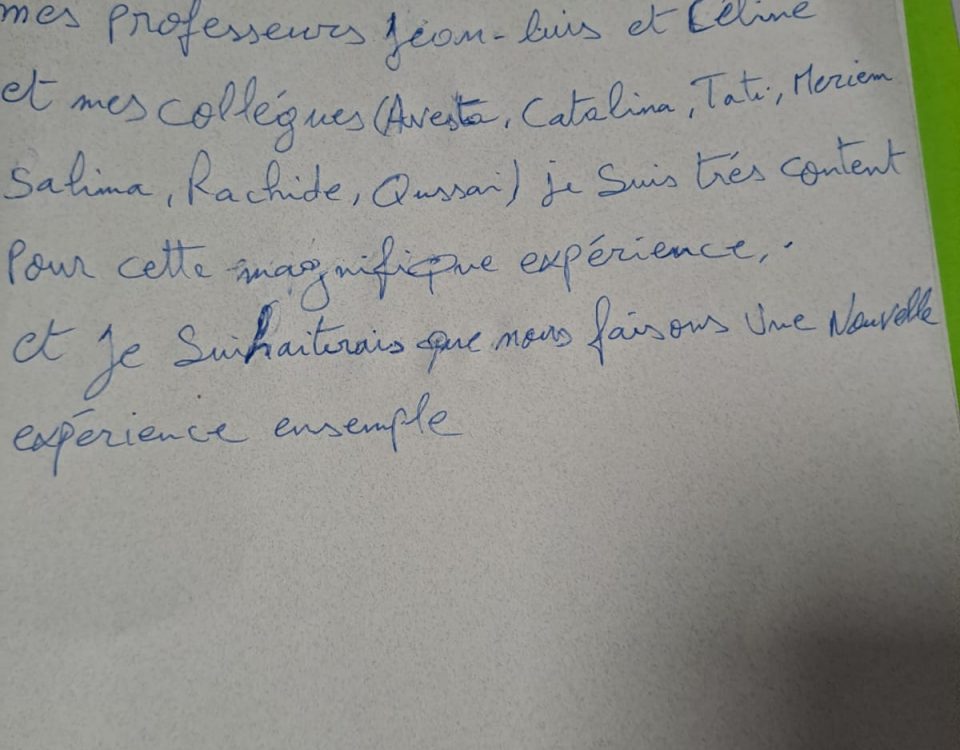 mes professeurs Jéon-luis et Céline
et mes collégues (Avesta, Catalina, Tati, Meriem
Salima, Rachide, Qussai) je Suis trés content
Pour cette magnifique expérience,.
et Je Suihaiterais que nous faisons Une Nouvelle
expérience ensemple